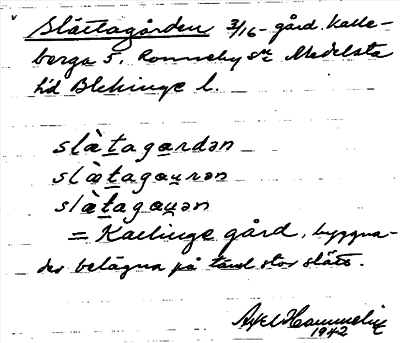 Slättagården 3/16- gård. Kalle-
berga 5, Ronneby sn Medelsta
hd Blekinge l.
slàtagardən
slàtagau̯rən
slàtagau̯ən
= Kallinge gård, byggna-
der belägna på stor slätt.
Axel Hammelin
1942